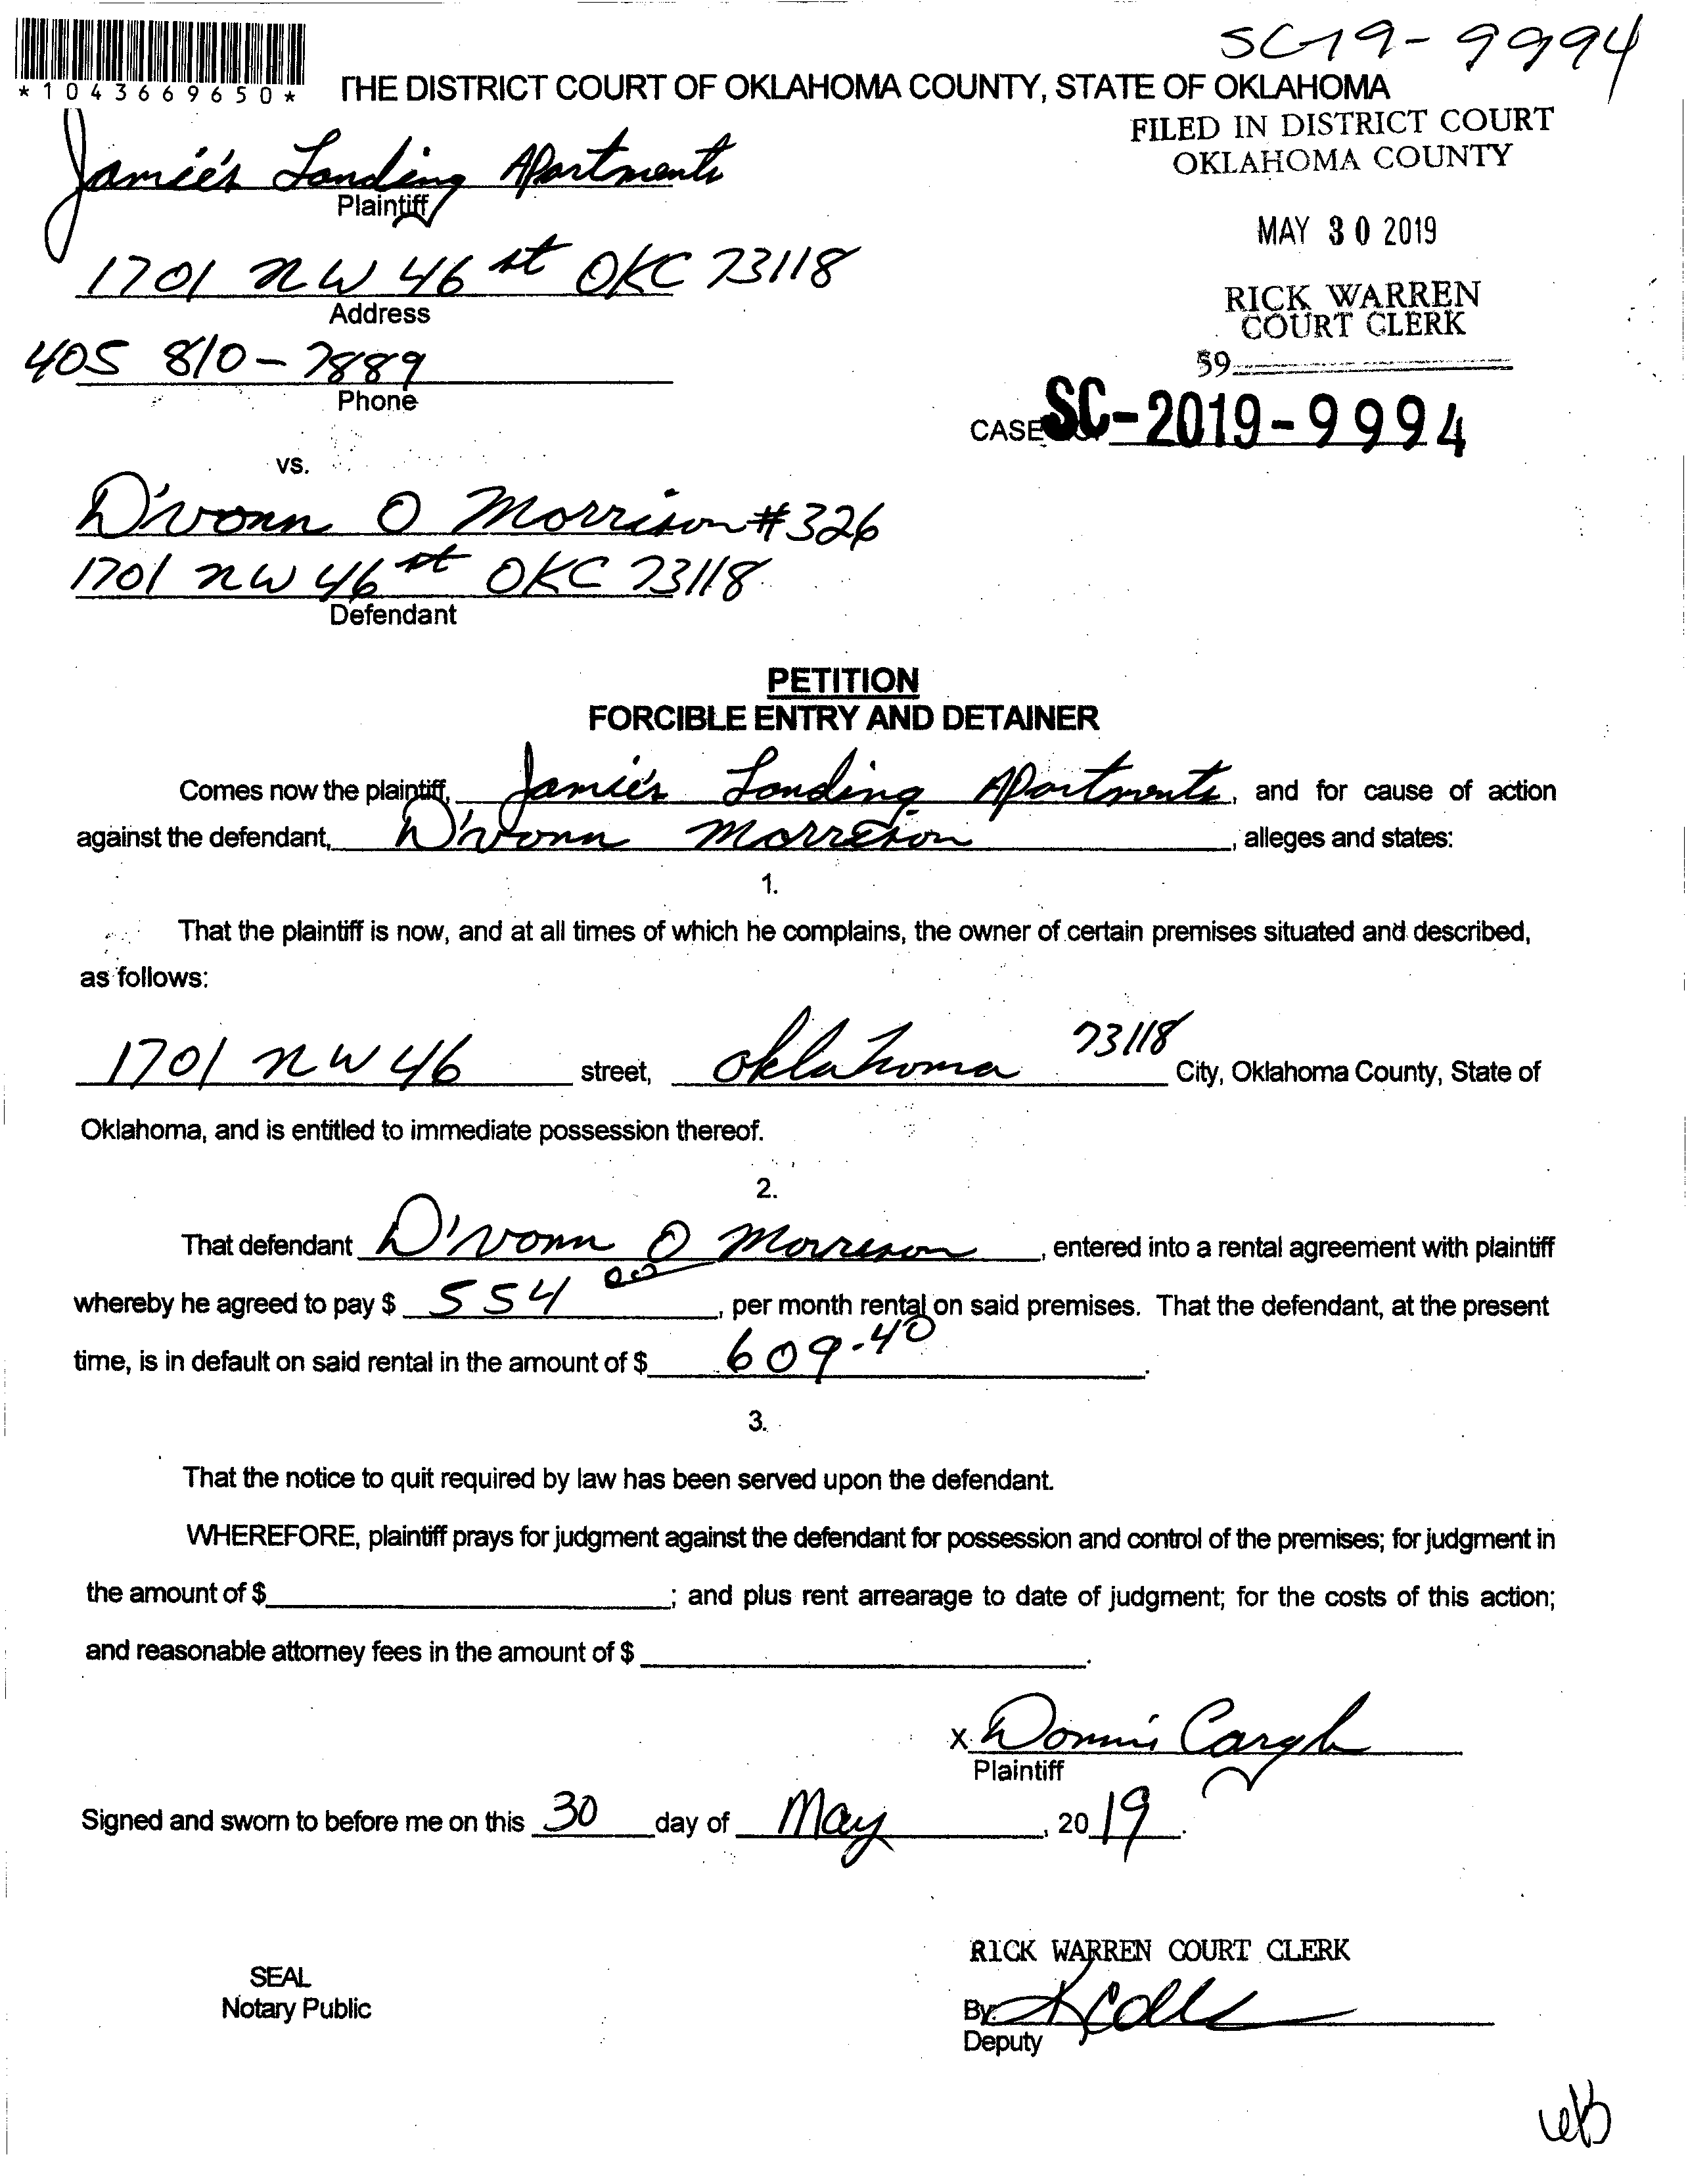 SC-19-9994
*1043669650*
THE DISTRICT COURT OF OKLAHOMA COUNTY, STATE OF OKLAHOMA
FILED IN DISTRICT COURT
OKLAHOMA COUNTY
Jamie's Landing Apartments
Plaintiff
MAY 30 2019
1701 NW 46 st OKC 73118
Address
RICK WARREN
COURT CLERK
405 810-7889
Phone
59
CASE SC-2019-9994
vs.
D'vonn O Morrison #326
1701 NW 46 st OKC 73118
Defendant
PETITION
FORCIBLE ENTRY AND DETAINER
Comes now the plaintiff, Jamie's Landing Apartments, and for cause of action
against the defendant, D'vonn Morrison, alleges and states:
1.
That the plaintiff is now, and at all times of which he complains, the owner of certain premises situated and described,
as follows:
1701 NW 46 street, Oklahoma 73118 City, Oklahoma County, State of
Oklahoma, and is entitled to immediate possession thereof.
2.
That defendant D'vonn O Morrison, entered into a rental agreement with plaintiff
whereby he agreed to pay $ 554 00, per month rental on said premises. That the defendant, at the present
time, is in default on said rental in the amount of $ 609.40.
3.
That the notice to quit required by law has been served upon the defendant.
WHEREFORE, plaintiff prays for judgment against the defendant for possession and control of the premises; for judgment in
the amount of $ ; and plus rent arrearage to date of judgment; for the costs of this action;
and reasonable attorney fees in the amount of $ .
X
Plaintiff
Signed and sworn to before me on this 30 day of May, 2019.
RICK WARREN COURT CLERK
SEAL
Notary Public
By:
Deputy